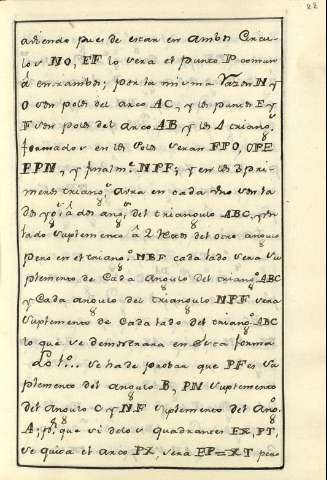 22
aviendo pues de estar en ambos Circu-
los NO, EF lo vera el punto P comun
à entrambos; por la misma razon N y
O son polos del arco AC, y los puntos E y
F son polos del arco AB y los 4 triang.s
formados en los polos veran FPO, OPE
EPN, y finalm.e NPF; y en los 3 pri-
meros triang.s avra en cada uno los la-
dos y à dos ang.s del triangulo ABC, y un
lado suplemento â 2 Rectos del otro angulo
pero en el triang.o NPF cada lado vera su-
plemento de Cada angulo del triang.o ABC
y Cada angulo del triangulo NPF vera
suplemento de Cada lado del triang.o ABC
lo que se demostrara en esta forma
Lo 1.o... se ha de probar que PF es su
plemento del angulo B, PN suplemento
del angulo C y NF suplemento del ang.o
A; p.r que si de los quadrantes EX, PT,
se quita el arco PX, vera EP=XT pero